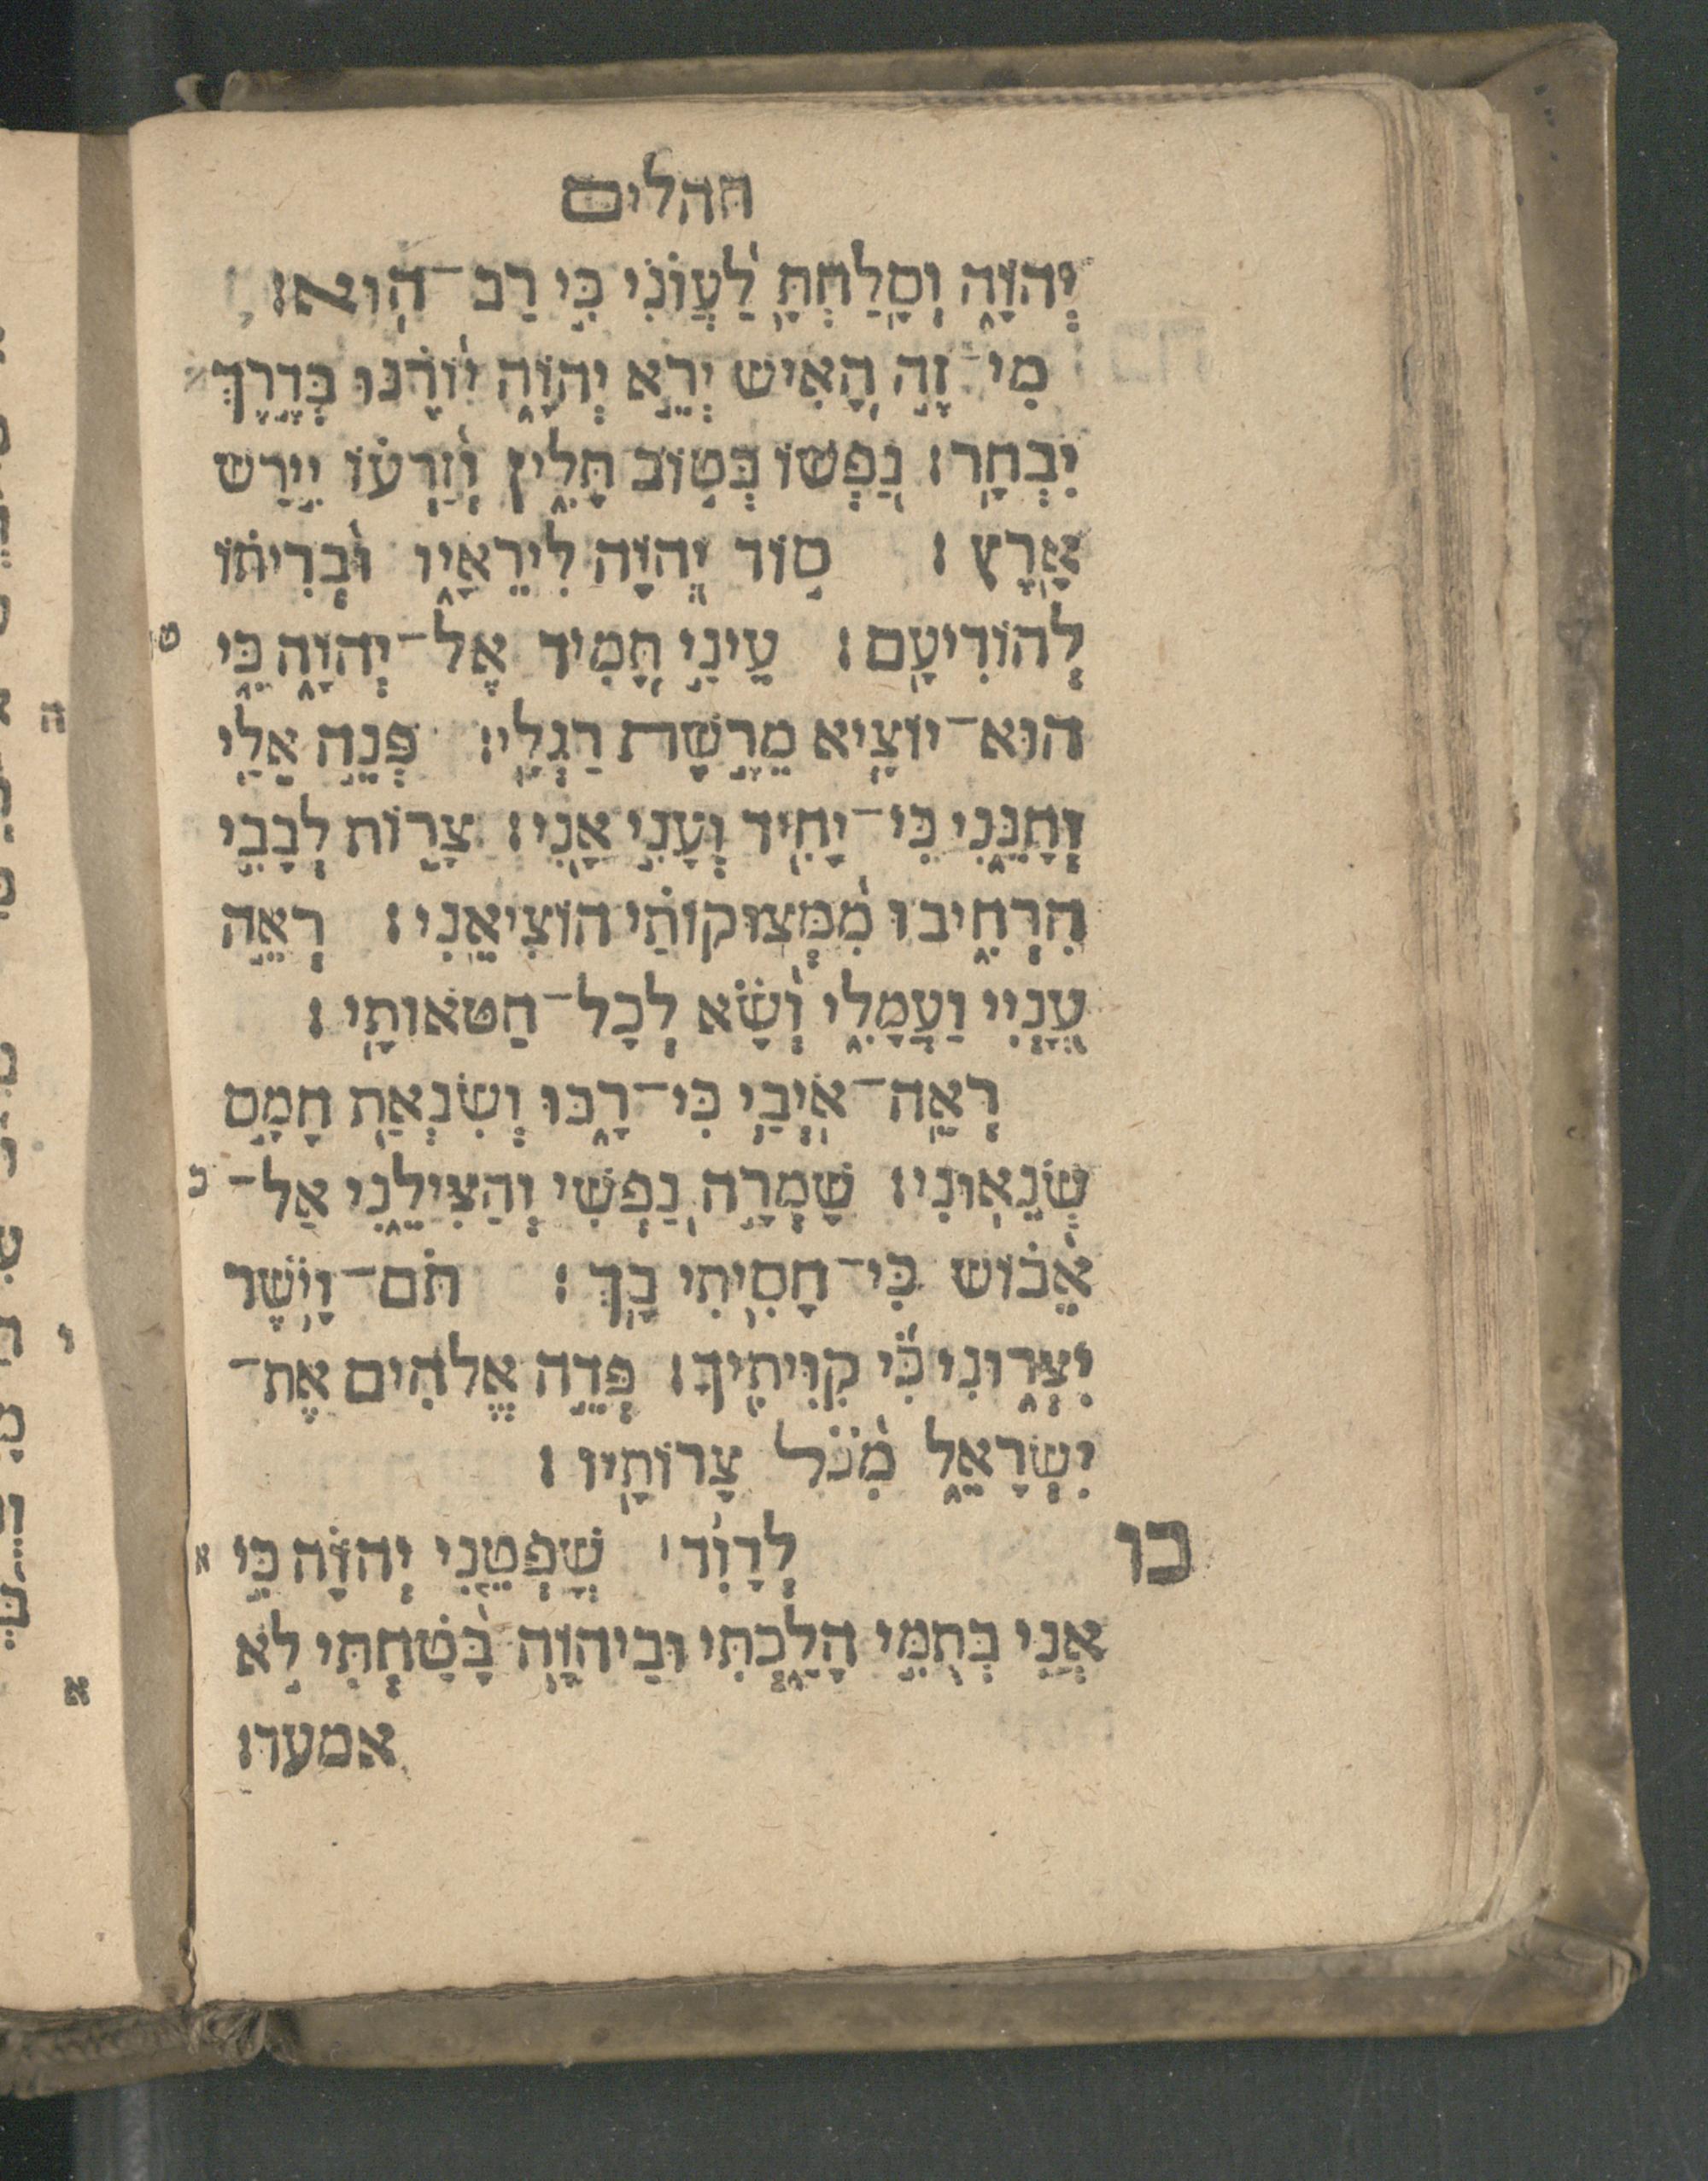 תהלים
יְהוָ֑ה וְֽסָלַחְתָּ֥ לַ֝עֲוֺנִ֗י כִּ֣י רַב־הֽוּא׃
מִי־זֶ֣ה הָ֭אִישׁ יְרֵ֣א יְהוָ֑ה י֝וֹרֶ֗נּוּ בְּדֶ֣רֶךְ
יִבְחָֽר׃ נַ֭פְשׁוֹ בְּט֣וֹב תָּלִ֑ין וְ֝זַרְע֗וֹ יִ֣ירַשׁ
אָֽרֶץ׃ ס֣וֹד יְ֭הוָה לִירֵאָ֑יו וּ֝בְרִית֗וֹ
טו לְהוֹדִיעָֽם׃ עֵינַ֣י תָּ֭מִיד אֶל־יְהוָ֑ה כִּ֤י
הֽוּא־יוֹצִ֖יא מֵרֶ֣שֶׁת רַגְלָֽי׃ פְּנֵה־אֵלַ֥י
וְחָנֵּ֑נִי כִּֽי־יָחִ֖יד וְעָנִ֣י אָֽנִי׃ צָר֣וֹת לְבָבִ֣י
הִרְחִ֑יבוּ מִ֝מְּצֽוּקוֹתַ֗י הוֹצִיאֵֽנִי׃ רְאֵ֣ה
עָ֭נְיִי וַעֲמָלִ֑י וְ֝שָׂ֗א לְכָל־חַטֹּאותָֽי׃
רְאֵֽה־אֹיְבַ֥י כִּי־רָ֑בּוּ וְשִׂנְאַ֖ת חָמָ֣ס
כ שְׂנֵאֽוּנִי׃ שָׁמְרָ֣ה נַ֭פְשִׁי וְהַצִּילֵ֑נִי אַל־
אֵ֝ב֗וֹשׁ כִּֽי־חָסִ֥יתִי בָֽךְ׃ תֹּם־וָיֹ֥שֶׁר
יִצְּר֑וּנִי כִּ֝֗י קִוִּיתִֽיךָ׃ פְּדֵ֣ה אֱלֹהִ֣ים אֶת־
יִשְׂרָאֵ֑ל מִ֝כֹּ֗ל צָרוֹתָֽיו׃
כו לְדָוִ֨ד׀ שָׁפְטֵ֤נִי יְהוָ֗ה כִּֽי א
אֲ֭נִי בְּתֻמִּ֣י הָלַ֑כְתִּי וּבַיהוָ֥ה בָּ֝טַ֗חְתִּי לֹ֣א
אמעד׃